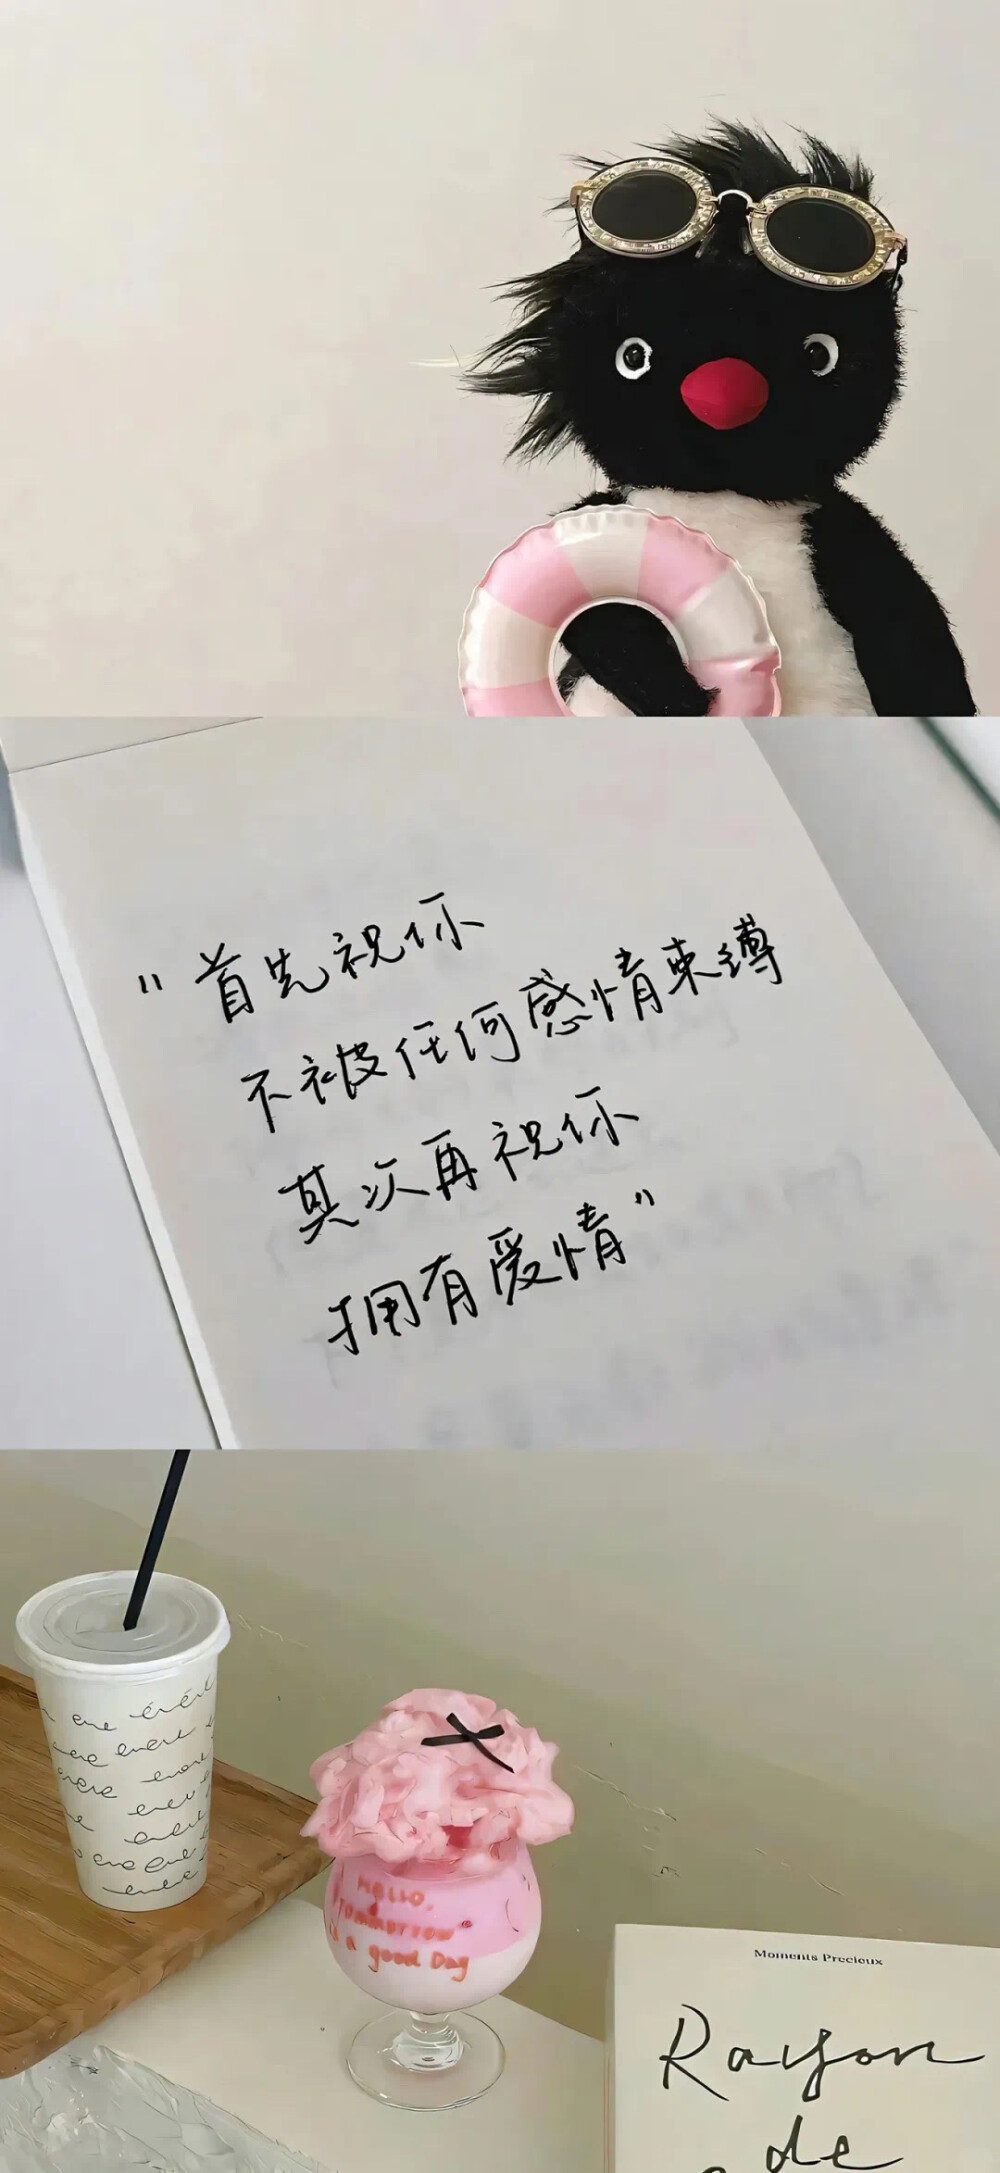 "首先祝你
不被任何感情束缚
其次再祝你
拥有爱情"
HELLO,
TOMMORROW
is a good Day
Moments Precieux
Rayon
de